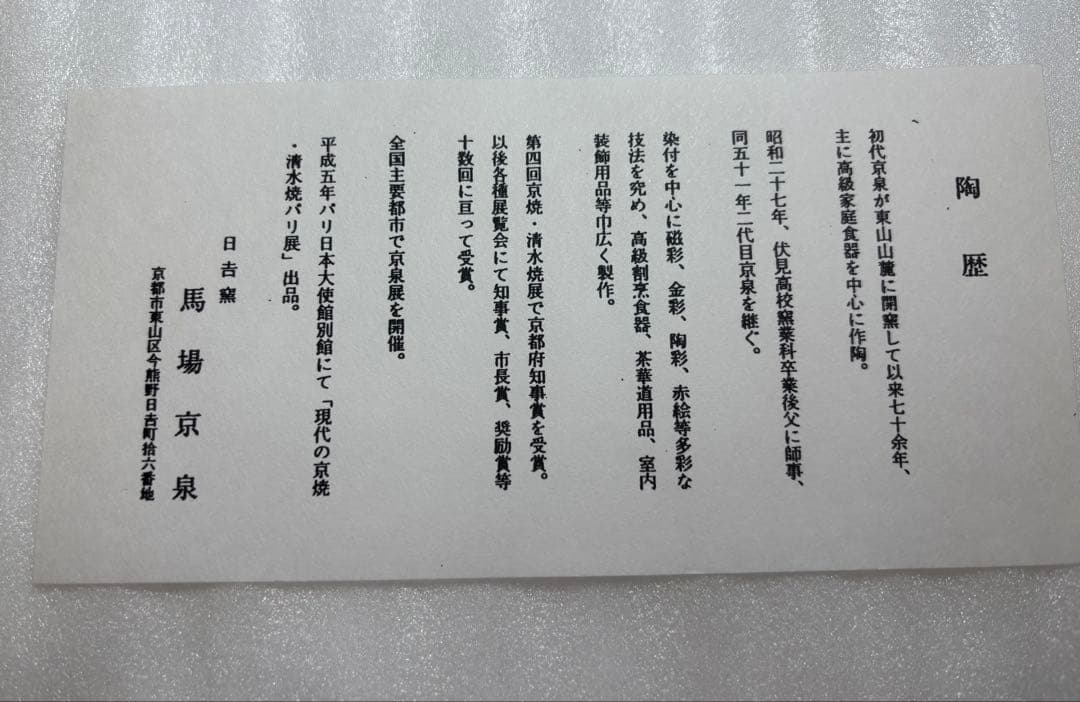 陶歴
初代京泉が東山山麓に開窯して以来七十余年、
主に高級家庭食器を中心に作陶。
昭和二十七年、伏見高校窯業科卒業後父に師事、
同五十一年二代目京泉を継ぐ。
染付を中心に磁彩、金彩、陶彩、赤絵等多彩な
技法を究め、高級割烹食器、茶華道用品、室内
装飾用品等巾広く製作。
第四回京焼・清水焼展で京都府知事賞を受賞。
以後各種展覧会にて知事賞、市長賞、奨励賞等
十数回に亘って受賞。
全国主要都市で京泉展を開催。
平成五年パリ日本大使館別館にて「現代の京焼
・清水焼パリ展」出品。
日吉窯
馬場京泉
京都市東山区今熊野日吉町拾六番地